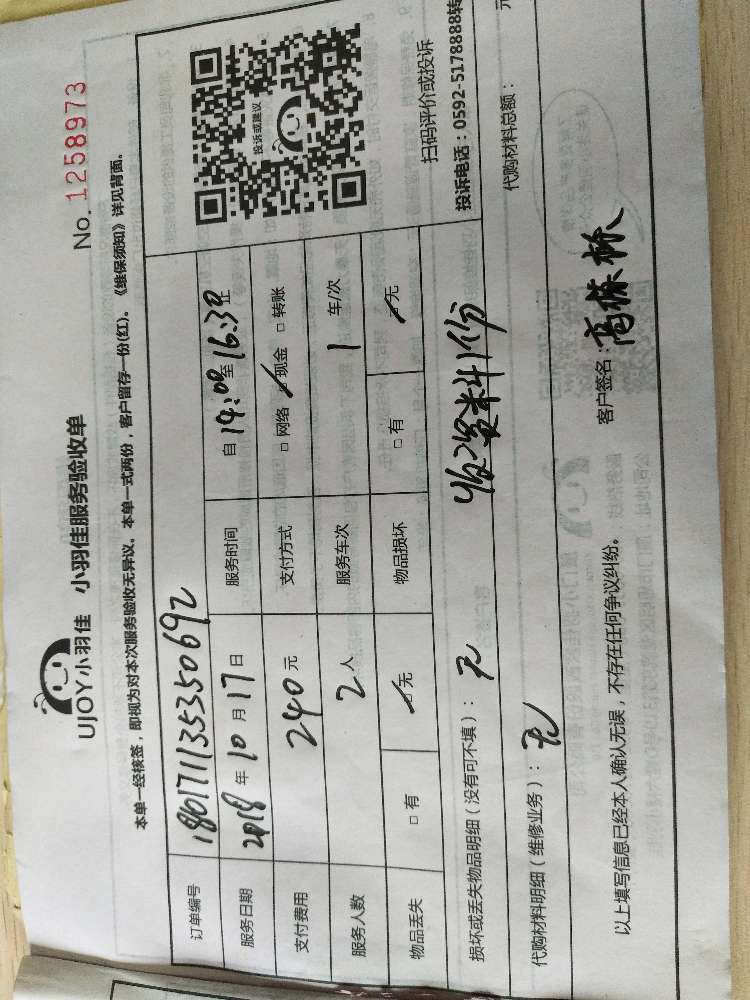 UJOY小羽佳 小羽佳服务验收单
No. 1258973
本单一经核签，即视为对本次服务验收无异议。本单一式两份，客户留存一份(红)。《维保须知》详见背面。
订单编号 180171135350692
服务日期 2018年10月17日 服务时间 自14:00至16:30止
支付费用 240元 支付方式 □网络 ☑现金 □转账
服务人数 2人 服务车次 1车/次
物品丢失 □有 ☑无 物品损坏 □有 ☑无
投诉或建议
扫码评价或投诉
投诉电话：0592-5178888转
损坏或丢失物品明细（没有可不填）：无 收资料1份
代购材料明细（维修业务）：无 代购材料总额： 元
以上填写信息已经本人确认无误，不存在任何争议纠纷。 客户签名：